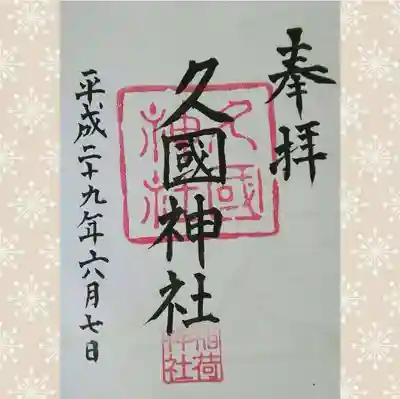 奉拝
久國神社
平成二十九年六月七日
久國
神社